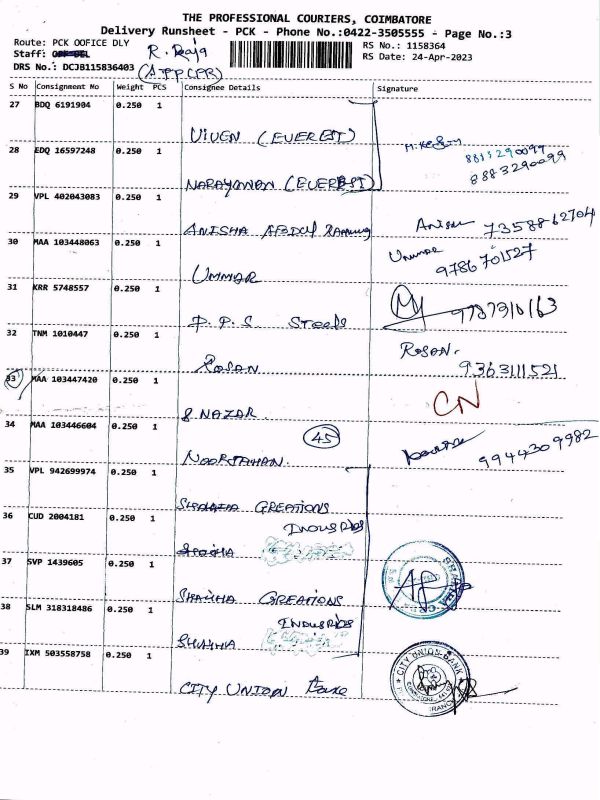 THE PROFESSIONAL COURIERS, COIMBATORE
Delivery Runsheet - PCK - Phone No.:0422-3505555 - Page No.:3
Route: PCK OOFICE DLY
RS No.: 1158364
Staff:
R. Raja
RS Date: 24-Apr-2023
DRS No.: DCJB115836403
S No Consignment No Weight PCS Consignee Details Signature
27 BDQ 6191904 0.250 1
VIVEN (EVEREST)
28 EDQ 16597248 0.250 1
8883290099
NARAYANAN (EVEREST)
29 VPL 402043083 0.250 1
ANISHA ABDUL 7358862704
30 MAA 103448063 0.250 1
9786701527
UMMAR
31 KRR 5748557 0.250 1
P.P.S. Steels 9787310163
32 TNM 1010447 0.250 1
ROSAN.
ROSAN 9363111521
33 MAA 103447420 0.250 1
CN
S. NAZAR
34 MAA 103446604 0.250 1
45
NOORJAHAN. 9944309982
35 VPL 942699974 0.250 1
CREATIONS
36 CUD 2004181 0.250 1
37 SVP 1439605 0.250 1
CREATIONS
38 SLM 318318486 0.250 1
39 IXM 503558758 0.250 1
CITY UNION BANK
CITY UNION